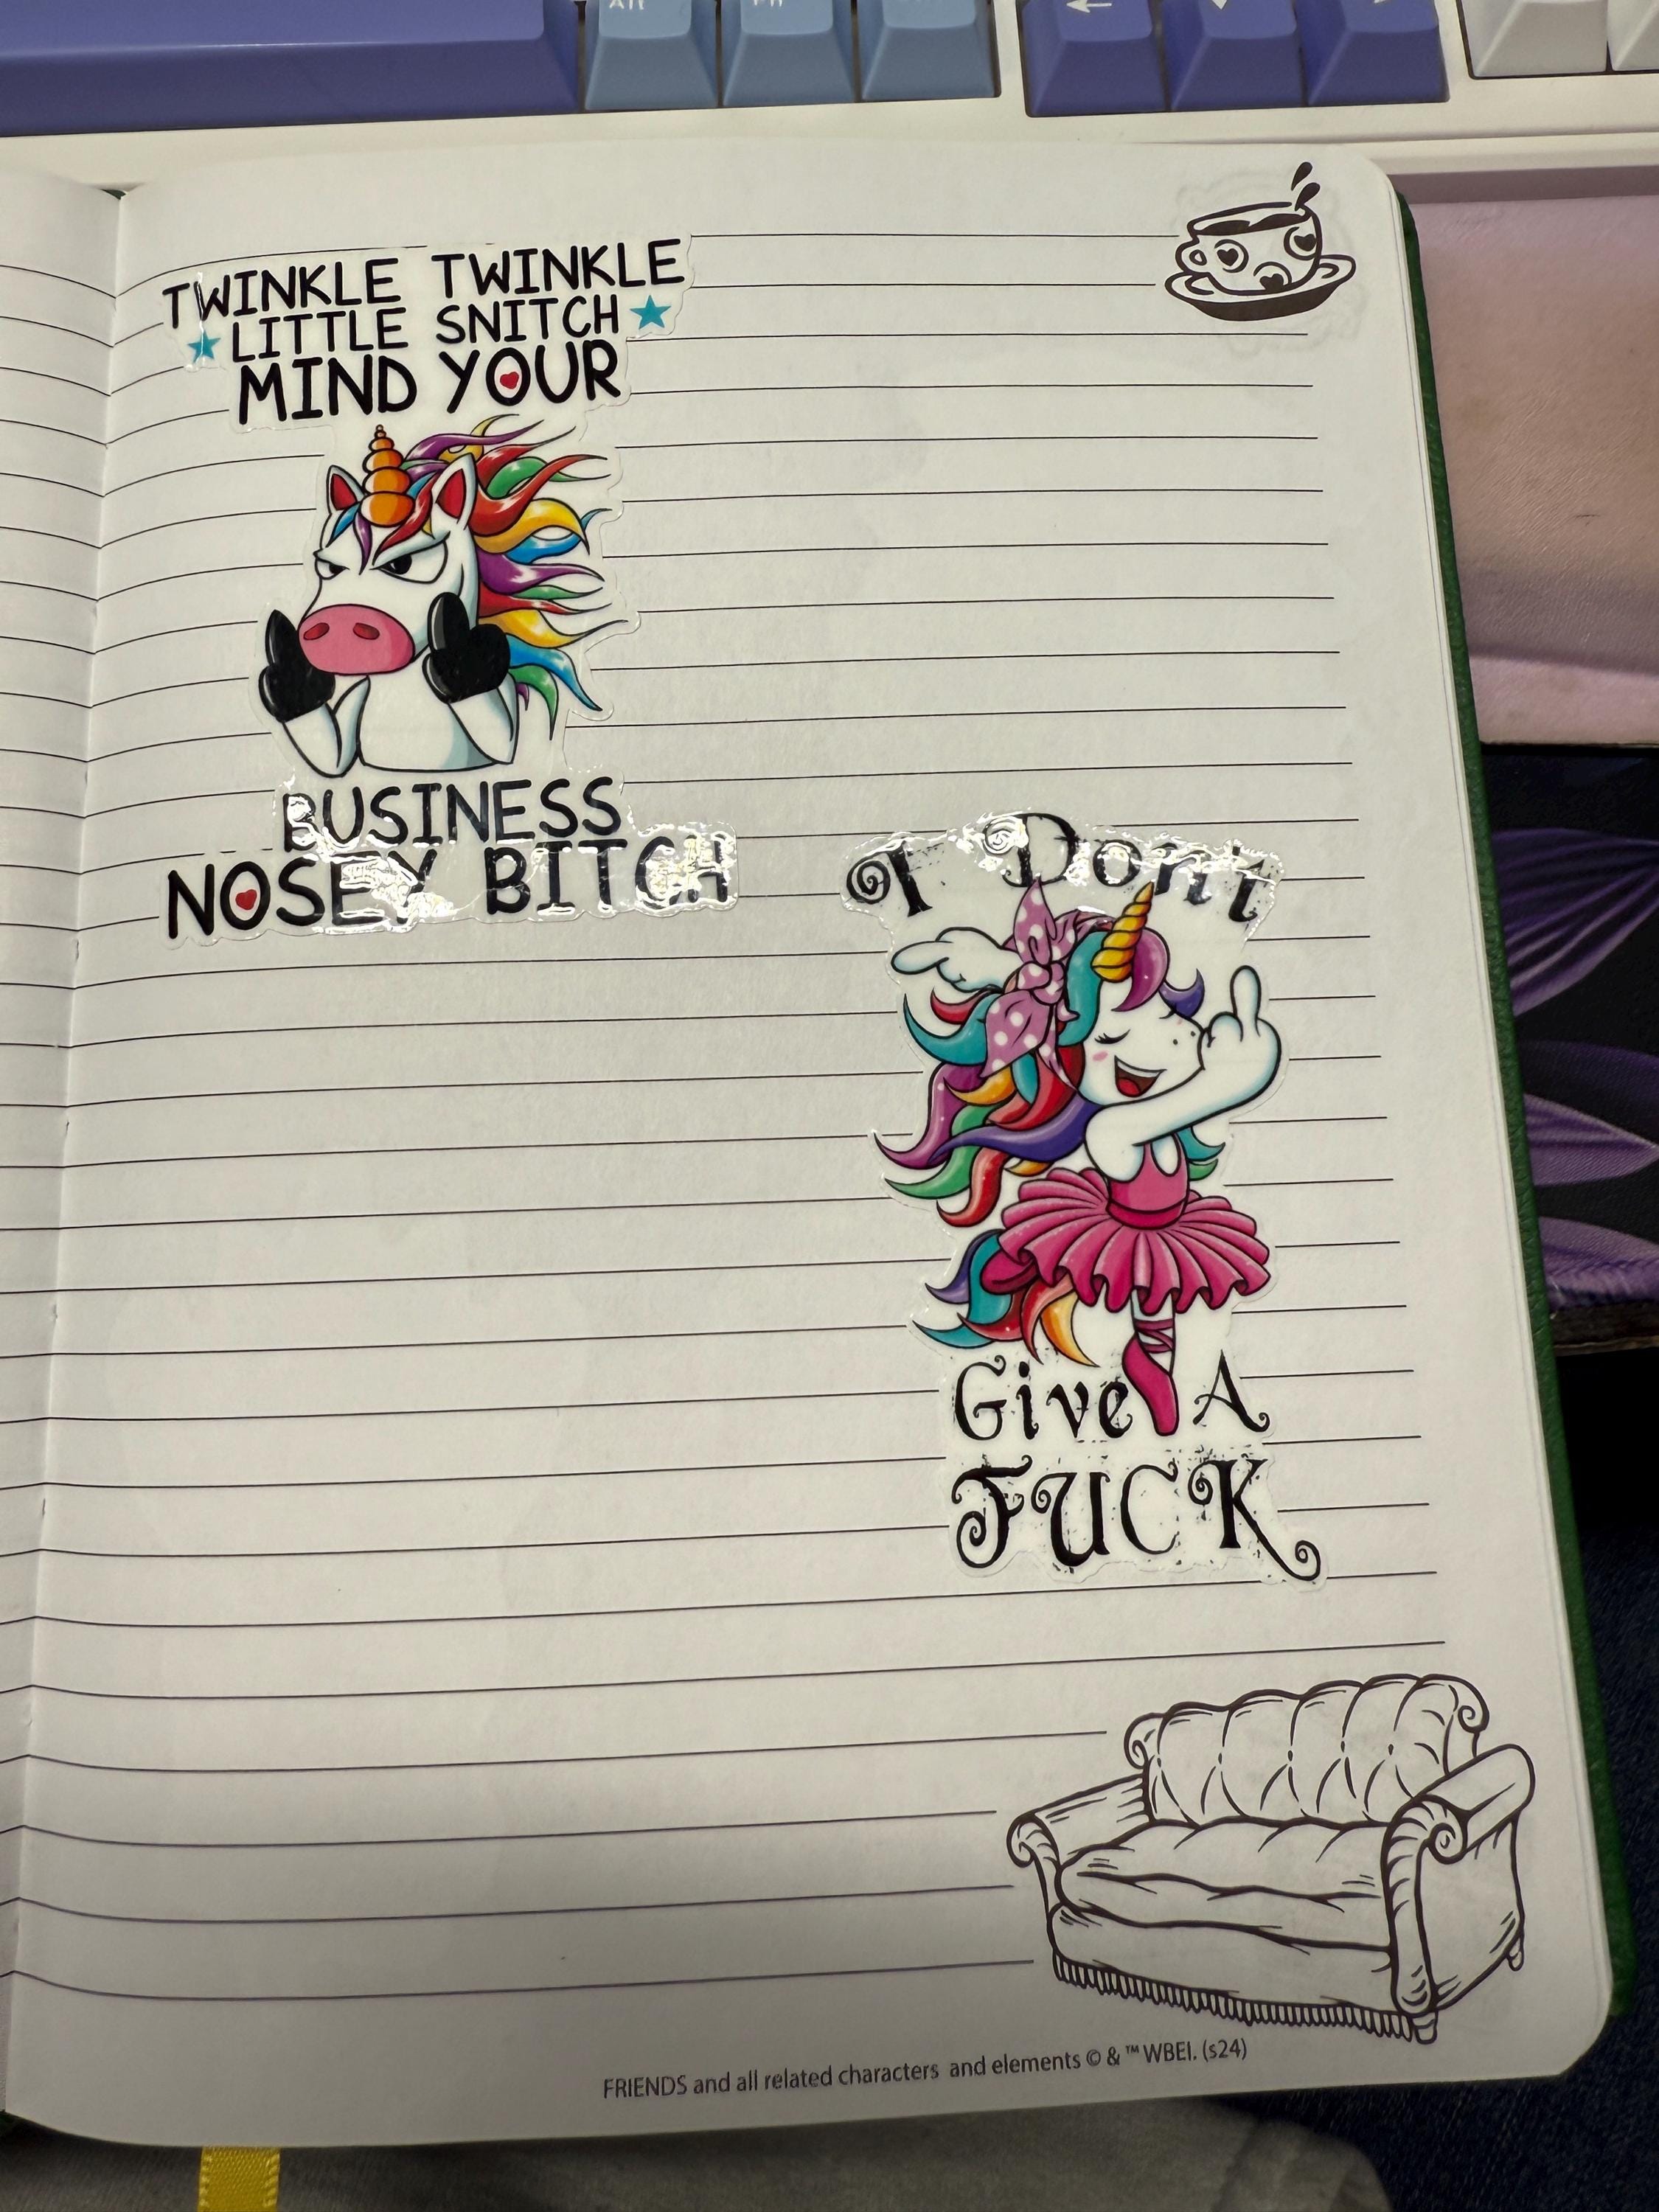 TWINKLE TWINKLE
LITTLE SNITCH
MIND YOUR
BUSINESS
NOSEY BITCH
I Don't
Give A
FUCK
FRIENDS and all related characters and elements © & ™ WBEI. (s24)